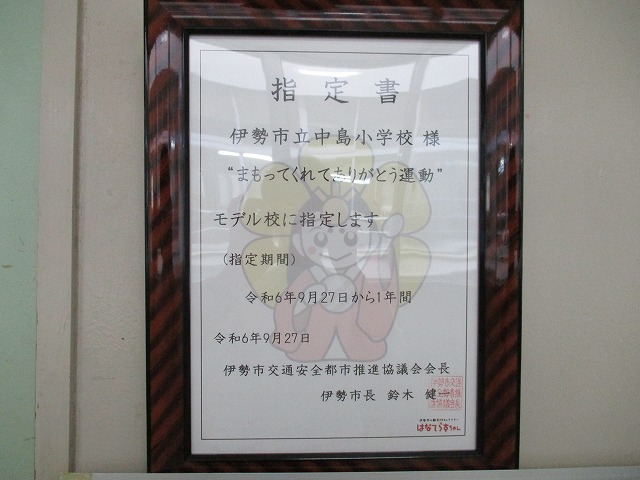 指定書
伊勢市立中島小学校 様
“まもってくれてありがとう運動”
モデル校に指定します
（指定期間）
令和6年9月27日から1年間
令和6年9月27日
伊勢市交通安全都市推進協議会会長
伊勢市長 鈴木 健一
はなてらすちゃん